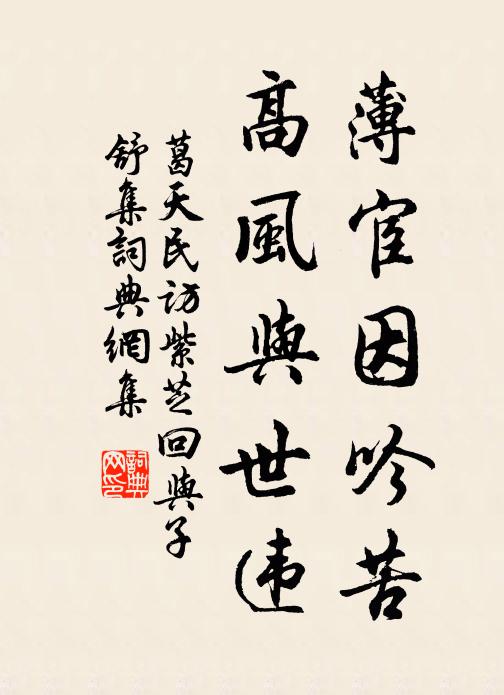 薄宦因吟苦
高風與世违
葛天民访紫芝回與子
舒集詞典網集
詞典网印